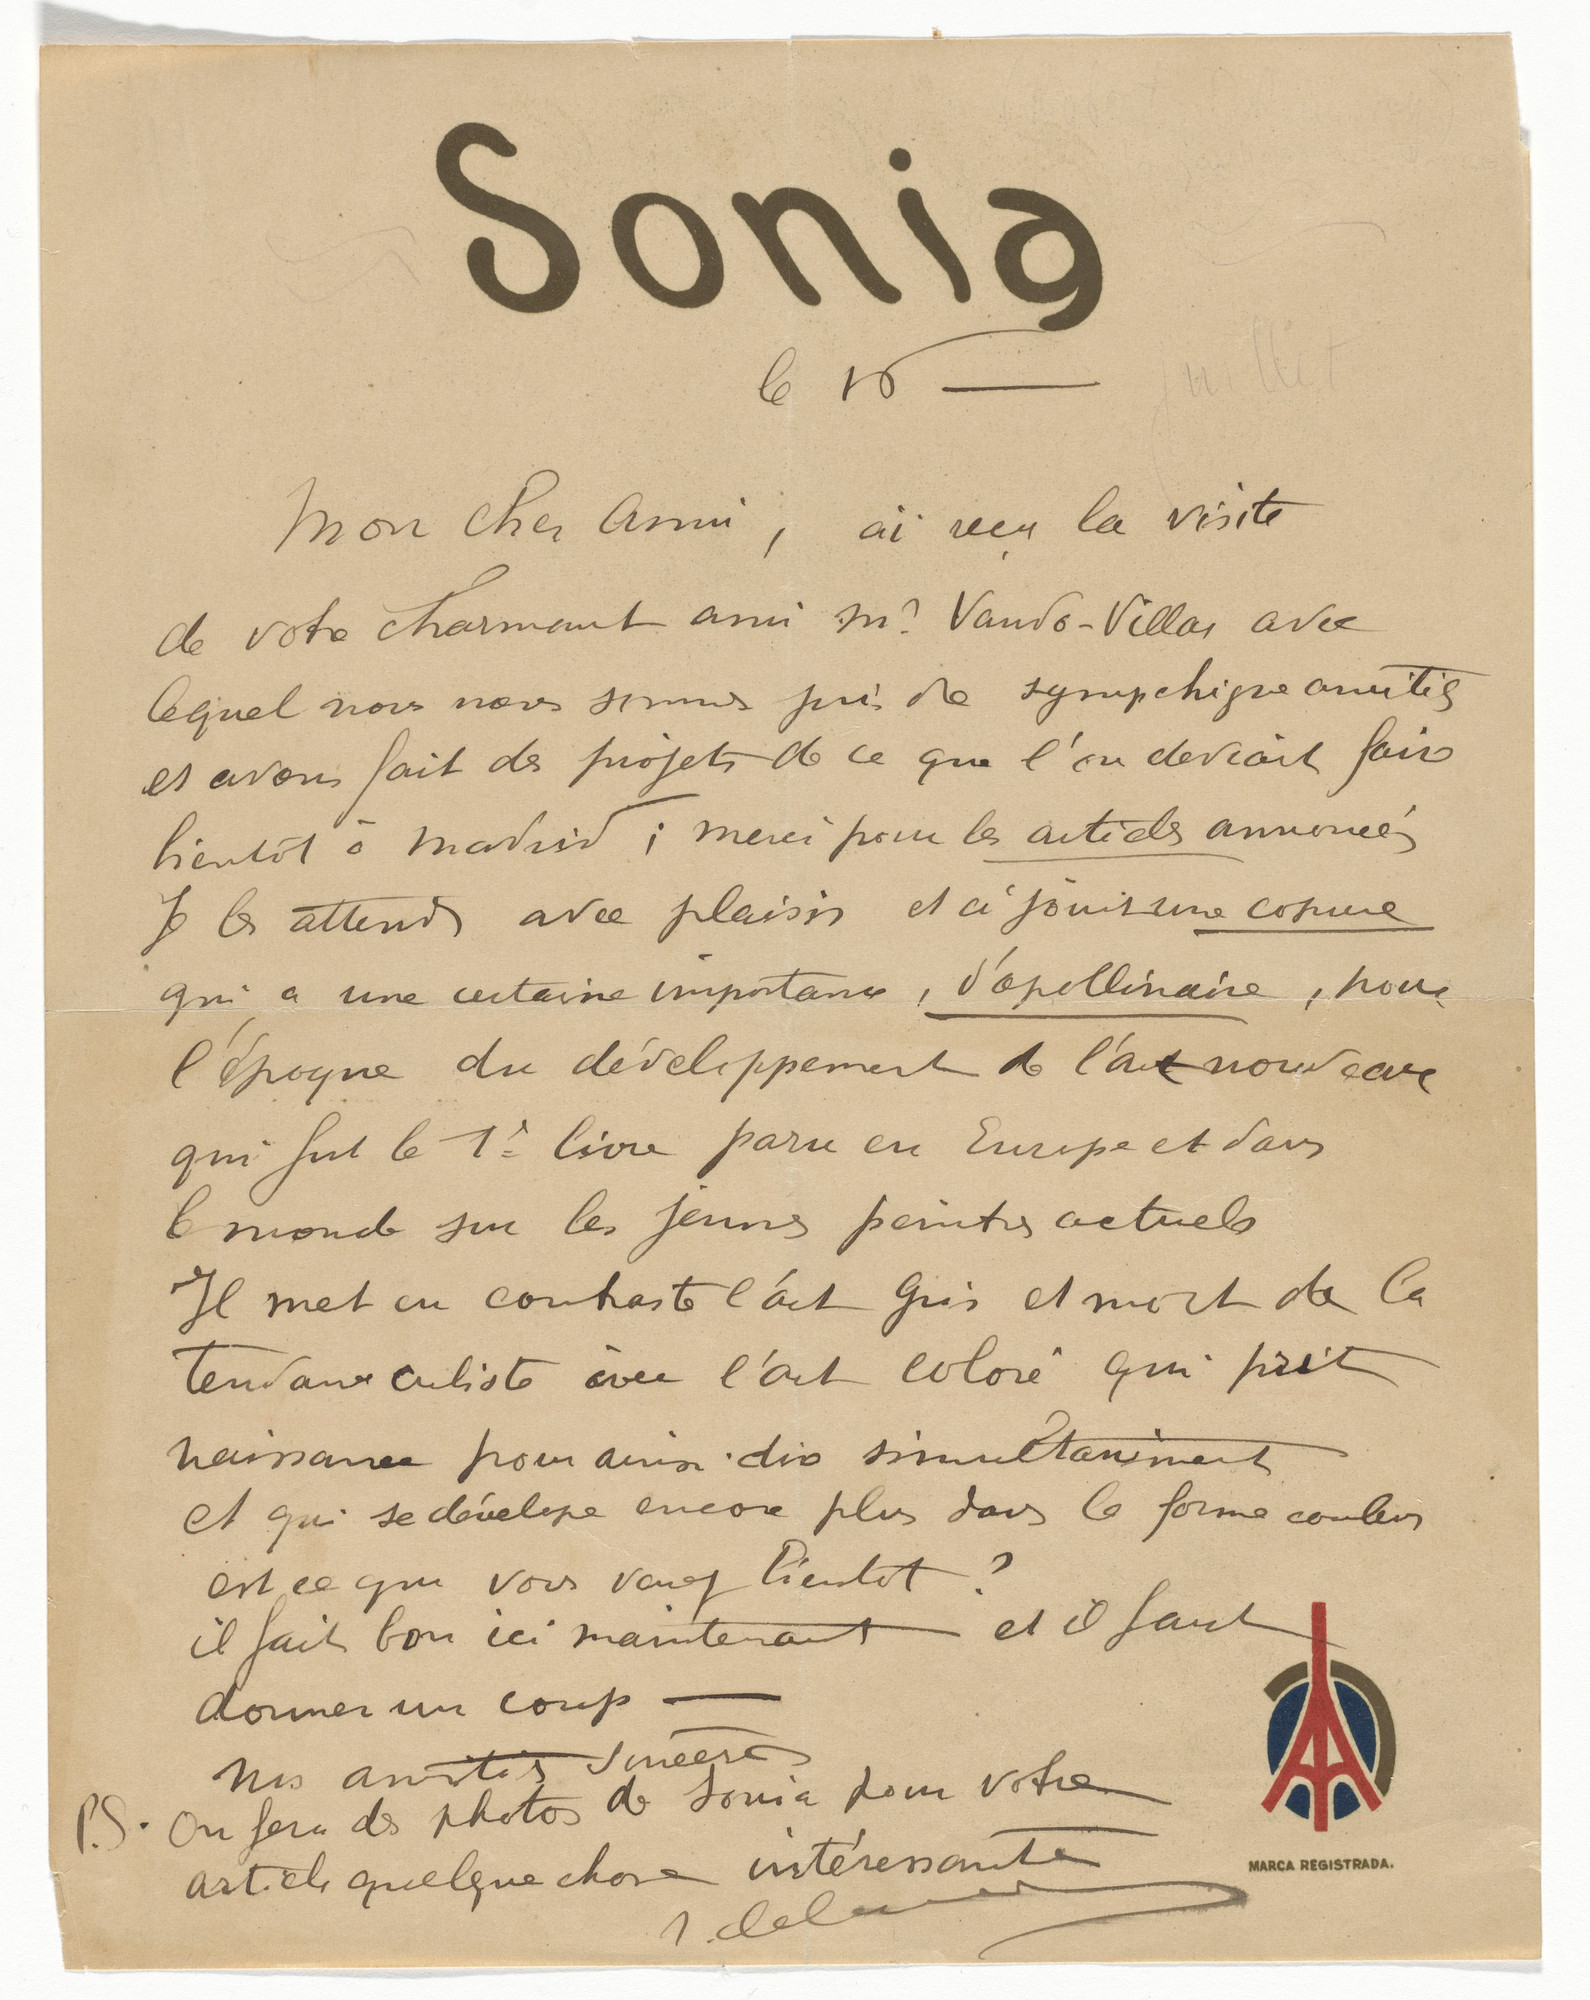 Sonia
le 16 — juillet
Mon cher Ami, ai reçu la visite
de votre charmant ami Mr Vando-Villar avec
lequel nous nous sommes pris de amitiés
et avons fait des projets de ce que l'on devrait faire
bientôt à Madrid ; merci pour les articles annoncés
Je les attends avec plaisir et une
qui a une certaine importance, d'apollinaire, pour
l'époque du développement de l'art nouveau
qui fut le 1er livre paru en Europe et dans
le monde sur les jeunes peintres actuels
Il met en contraste l'art gris et mort de la
tendance cubiste avec l'art coloré qui prit
naissance pour ainsi dire simultanément
et qui se dévelope encore plus dans la forme couleur
est ce que vous venez bientot ?
il fait bon ici maintenant et il faut
donner un coup —
Nos amitiés sincères
P.S. On fera des photos de Sonia pour votre
article quelque chose intéressante
r. delaunay
MARCA REGISTRADA.